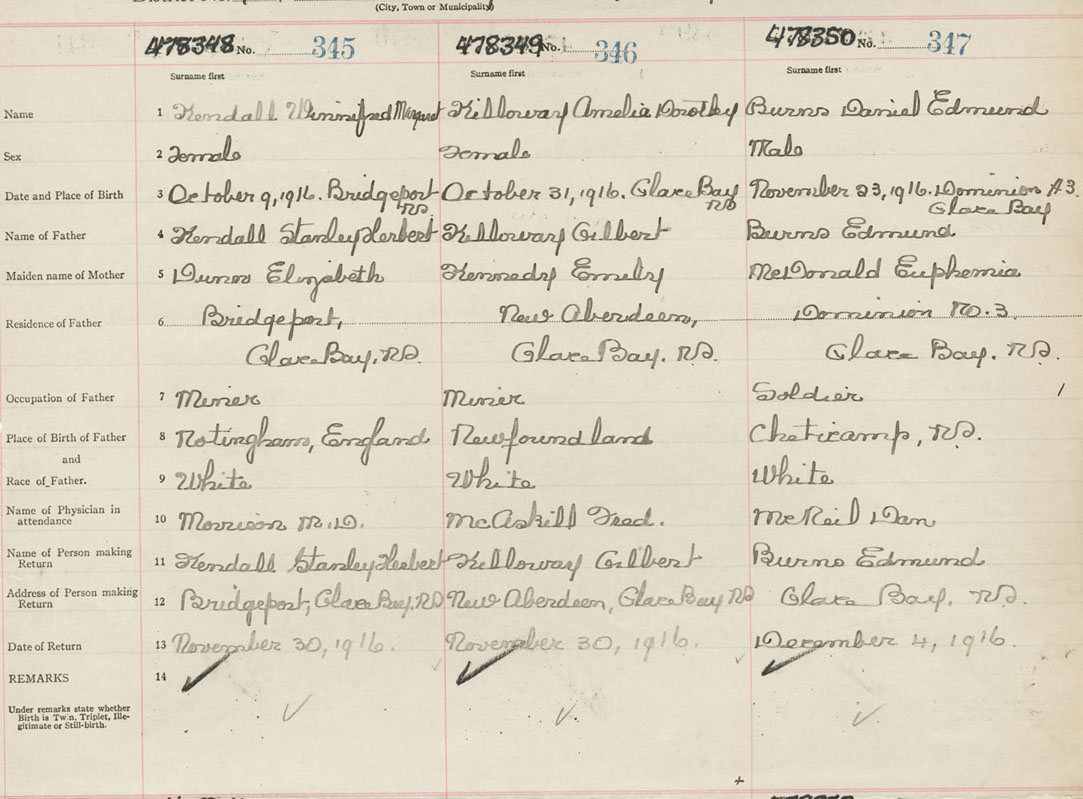 (City, Town or Municipality)
478348 No. 345 478349 No. 346 478350 No. 347
Surname first Surname first Surname first
Name 1 Kendall Winnifred Margaret Killoway Amelia Dorothy Burns Daniel Edmund
Sex 2 Female Female Male
Date and Place of Birth 3 October 9, 1916. Bridgeport October 31, 1916. Glace Bay November 23, 1916. Dominion #3.
NS NS Glace Bay
Name of Father 4 Kendall Stanley Herbert Killoway Gilbert Burns Edmund
Maiden name of Mother 5 Elizabeth Kennedy Emily McDonald Euphemia
Residence of Father 6 Bridgeport, New Aberdeen, Dominion No. 3.
Glace Bay. NS. Glace Bay. NS. Glace Bay. NS.
Occupation of Father 7 Miner Miner Soldier 1
Place of Birth of Father 8 Notingham, England Newfoundland Cheticamp, NS.
and
Race of Father. 9 White White White
Name of Physician in
attendance 10 Morrison M.D. McAskill Fred. McNeil Dan
Name of Person making
Return 11 Kendall Stanley Herbert Killoway Gilbert Burns Edmund
Address of Person making
Return 12 Bridgeport, Glace Bay, NS New Aberdeen, Glace Bay NS Glace Bay. NS.
Date of Return 13 November 30, 1916. November 30, 1916. December 4, 1916.
REMARKS 14
Under remarks state whether
Birth is Twin, Triplet, Ille-
gitimate or Still-birth.